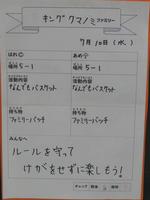 キングクマノミファミリー
7月10日(水)
はれ◯ あめ◯
場所 5-1 場所 5-1
活動内容 活動内容
なんでもバスケット なんでもバスケット
持ち物 持ち物
ファミリーバッチ ファミリーバッチ
みんなへ
ルールを守って
けがをせずに楽しもう!
チェック 担当